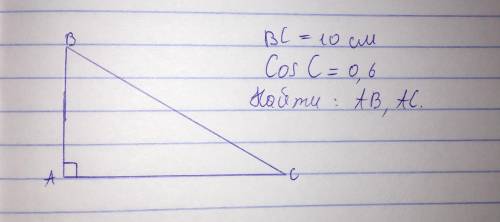 B
BC = 10 см
Cos C = 0,6
Найти : AB, AC.
A
C